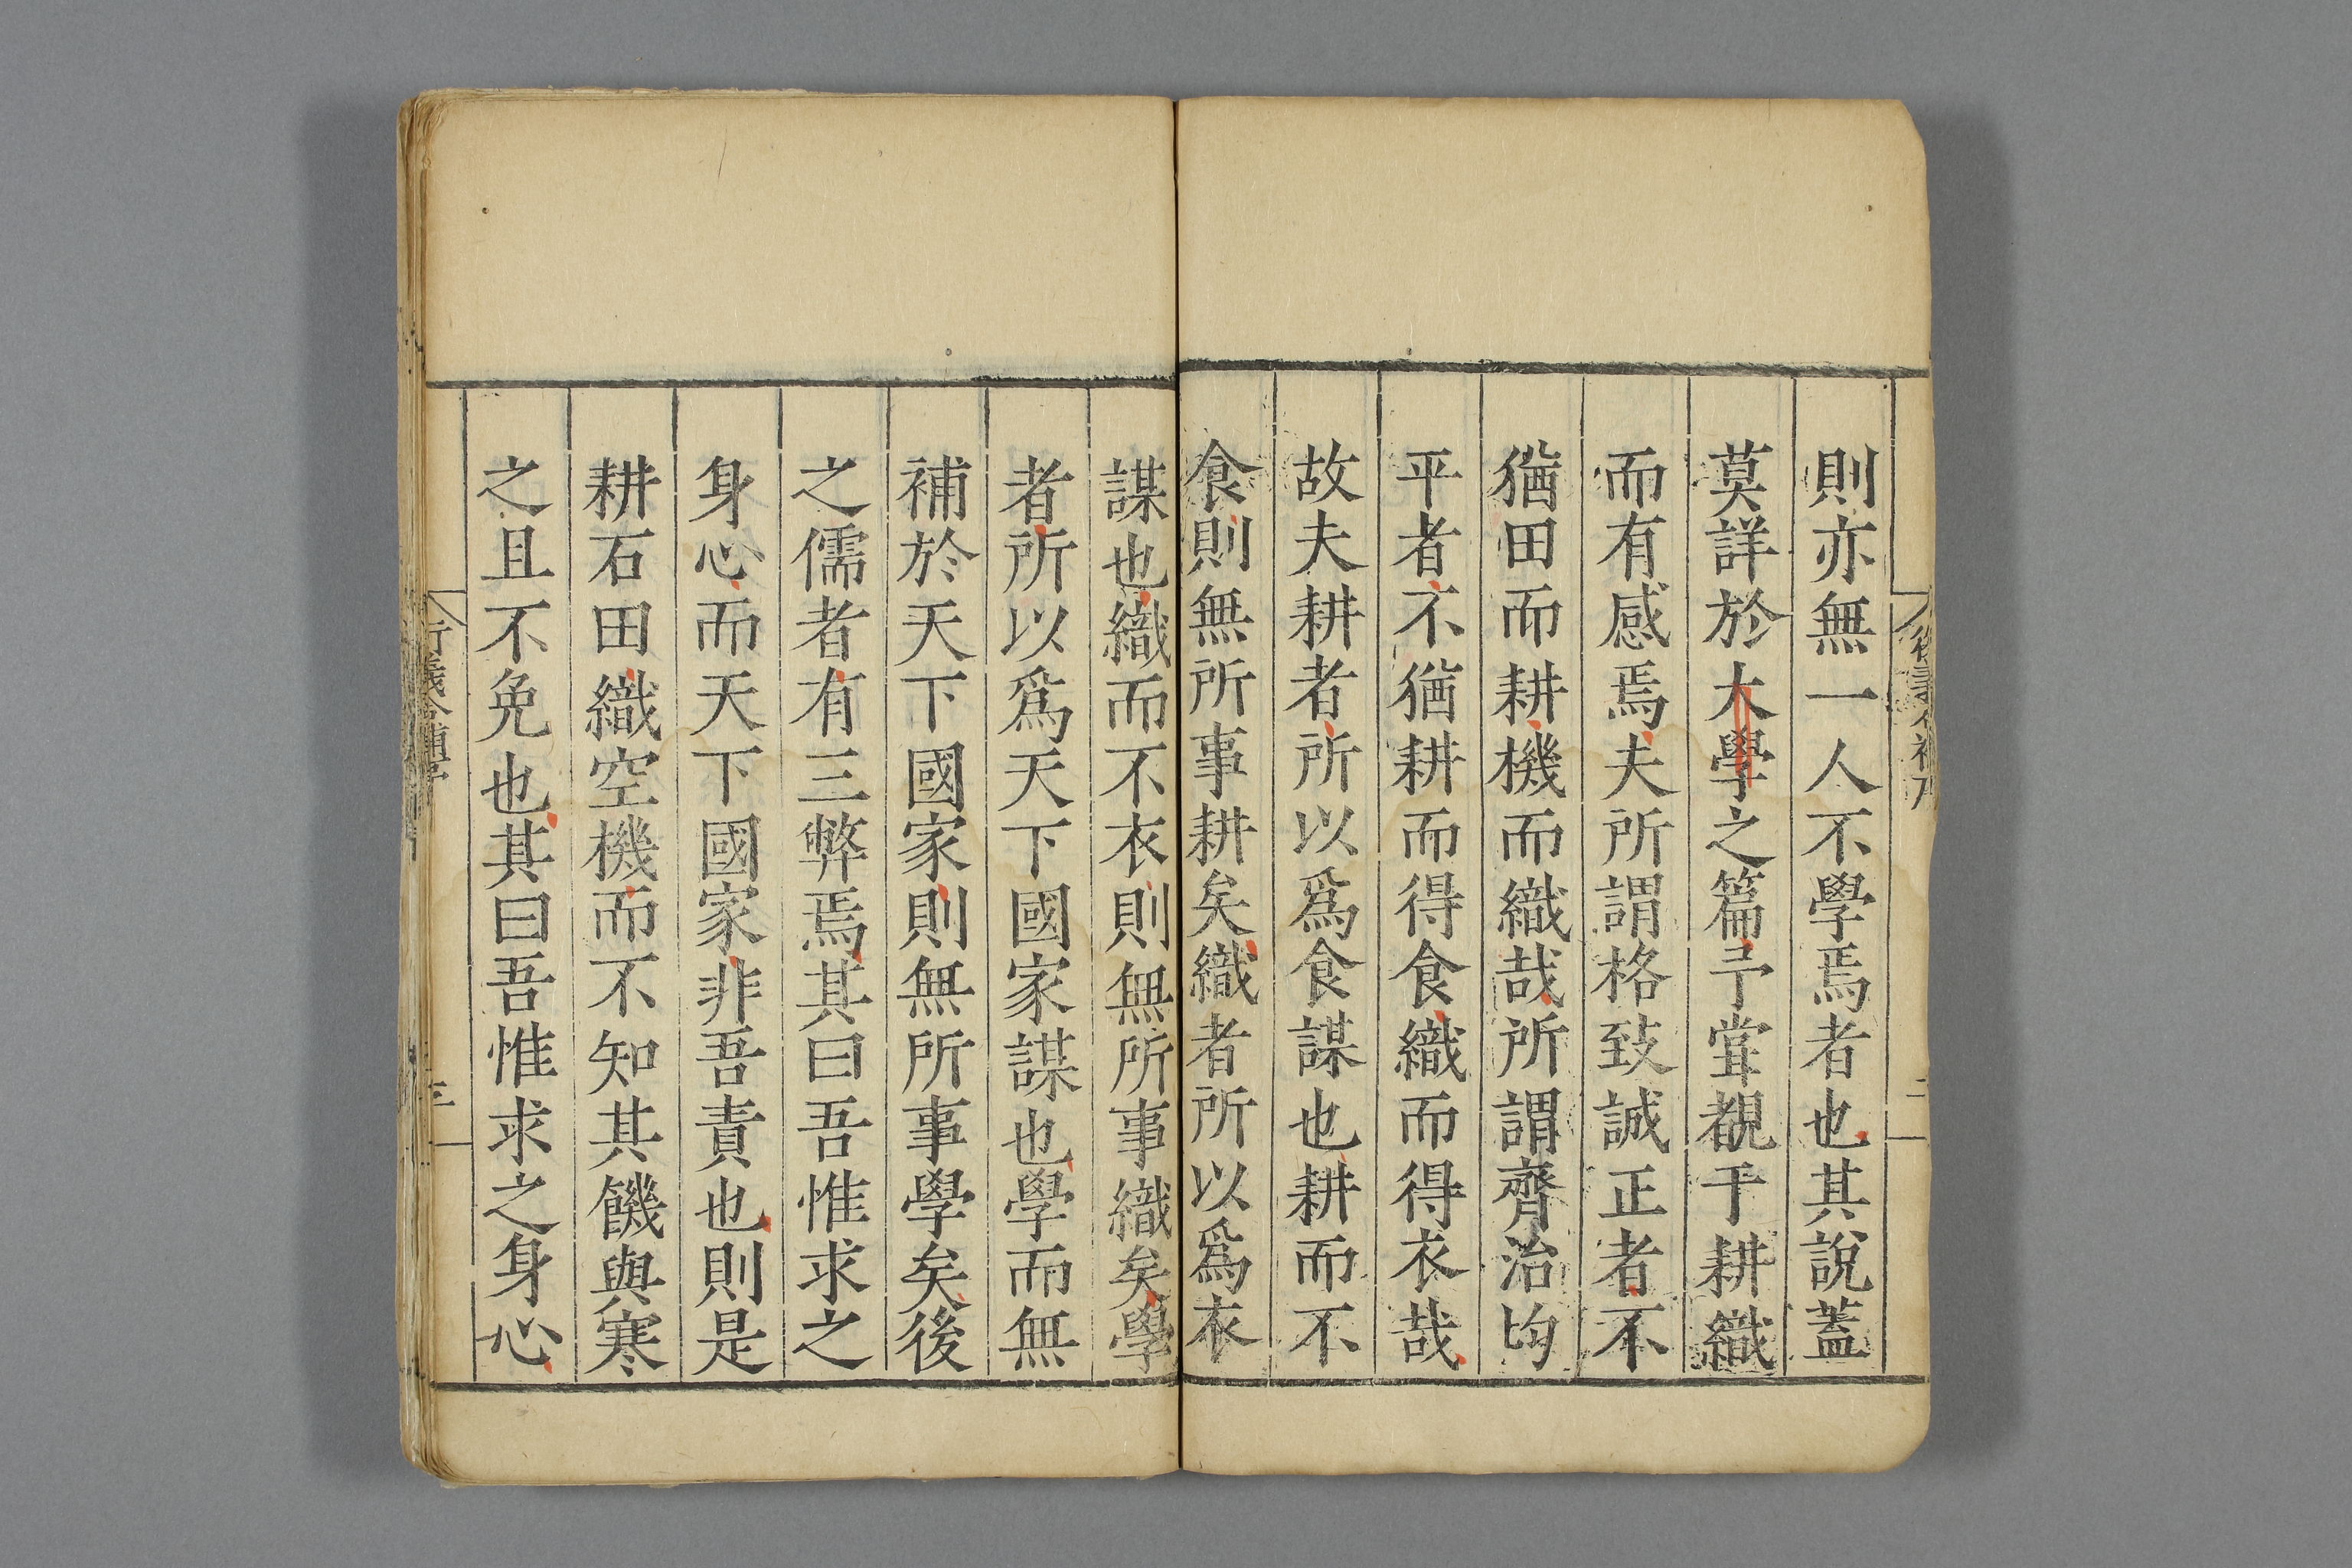 則亦無一人不學焉者也其說蓋
莫詳於大學之篇予嘗覩于耕織
而有感焉夫所謂格致誠正者不
猶田而耕機而織哉所謂齊治均
平者不猶耕而得食織而得衣哉
故夫耕者所以爲食謀也耕而不
食則無所事耕矣織者所以爲衣
謀也織而不衣則無所事織矣學
者所以爲天下國家謀也學而無
補於天下國家則無所事學矣後
之儒者有三弊焉其曰吾惟求之
身心而天下國家非吾責也則是
耕石田織空機而不知其饑與寒
之且不免也其曰吾惟求之身心